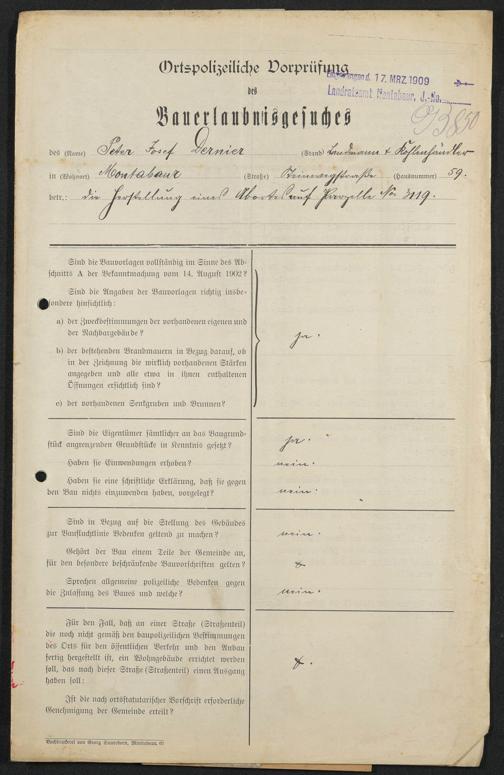 Ortspolizeiliche Vorprüfung
17. MRZ. 1909
Landratsamt Montabaur, J.-No.
des
Bauerlaubnisgesuches
des (Name) Peter Josef Dernier (Stand) Landmann & Kohlenhändler
in (Wohnort) Montabaur (Straße) (Hausnummer) 59.
betr.: die Herstellung eines Abortes auf Parzelle No 3119.
Sind die Bauvorlagen vollständig im Sinne des Ab-
schnitts A der Bekanntmachung vom 14. August 1902?
Sind die Angaben der Bauvorlagen richtig insbe-
sondere hinsichtlich:
a) der Zweckbestimmungen der vorhandenen eigenen und
der Nachbargebäude?
ja.
b) der bestehenden Brandmauern in Bezug darauf, ob
in der Zeichnung die wirklich vorhandenen Stärken
angegeben und alle etwa in ihnen enthaltenen
Öffnungen ersichtlich sind?
c) der vorhandenen Senkgruben und Brunnen?
Sind die Eigentümer sämtlicher an das Baugrund-
stück angrenzenden Grundstücke in Kenntnis gesetzt?
ja.
Haben sie Einwendungen erhoben?
nein.
Haben sie eine schriftliche Erklärung, daß sie gegen
den Bau nichts einzuwenden haben, vorgelegt?
nein.
Sind in Bezug auf die Stellung des Gebäudes
zur Baufluchtlinie Bedenken geltend zu machen?
nein.
Gehört der Bau einem Teile der Gemeinde an,
für den besondere beschränkende Bauvorschriften gelten?
Sprechen allgemeine polizeiliche Bedenken gegen
die Zulassung des Baues und welche?
nein.
Für den Fall, daß an einer Straße (Straßenteil)
die noch nicht gemäß den baupolizeilichen Bestimmungen
des Orts für den öffentlichen Verkehr und den Anbau
fertig hergestellt ist, ein Wohngebäude errichtet werden
soll, das nach dieser Straße (Straßenteil) einen Ausgang
haben soll:
Ist die nach ortsstatutarischer Vorschrift erforderliche
Genehmigung der Gemeinde erteilt?
Buchdruckerei von Georg Sauerborn, Montabaur.